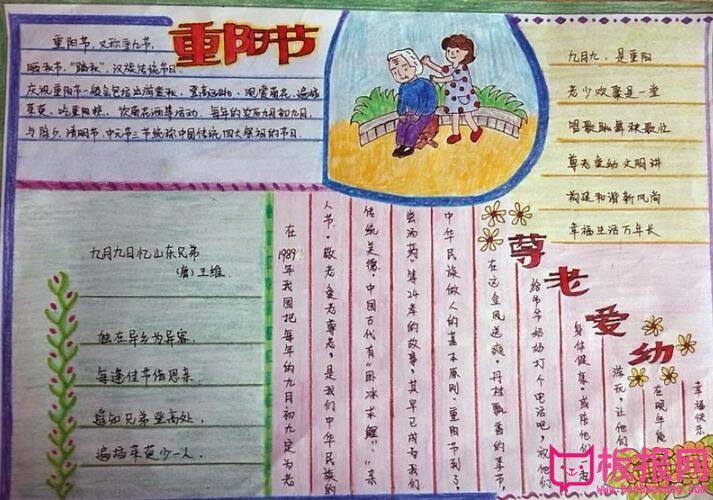 重阳节
重阳节，又称重九节，
晒秋节，“踏秋”，汉族传统节日。
庆祝重阳节一般会包括出游赏秋、登高远眺、观赏菊花、遍插
茱萸、吃重阳糕、饮菊花酒等活动。每年的农历九月初九日，
与除夕、清明节、中元节三节统称中国传统四大祭祖的节日。
九月九，是重阳
老少欢聚是一堂
唱歌跳舞秧歌忙
尊老爱幼文明讲
构建和谐新风尚
幸福生活万年长
九月九日忆山东兄弟
（唐）王维
独在异乡为异客，
每逢佳节倍思亲。
遥知兄弟登高处，
遍插茱萸少一人。
尊老爱幼
在1989年我国把每年的九月初九定为老
人节。敬老爱老尊老，是我们中华民族的
传统美德。中国古代有“卧冰求鲤”“亲
尝汤药”等24孝的故事，其早已成为我们
中华民族做人的基本原则。重阳节到了，
在这金风送爽，丹桂飘香的季节，
给爷爷奶奶打个电话吧，祝他们
身体健康，或陪他们
游玩，让他们
在晚年能
幸福快乐
板报网